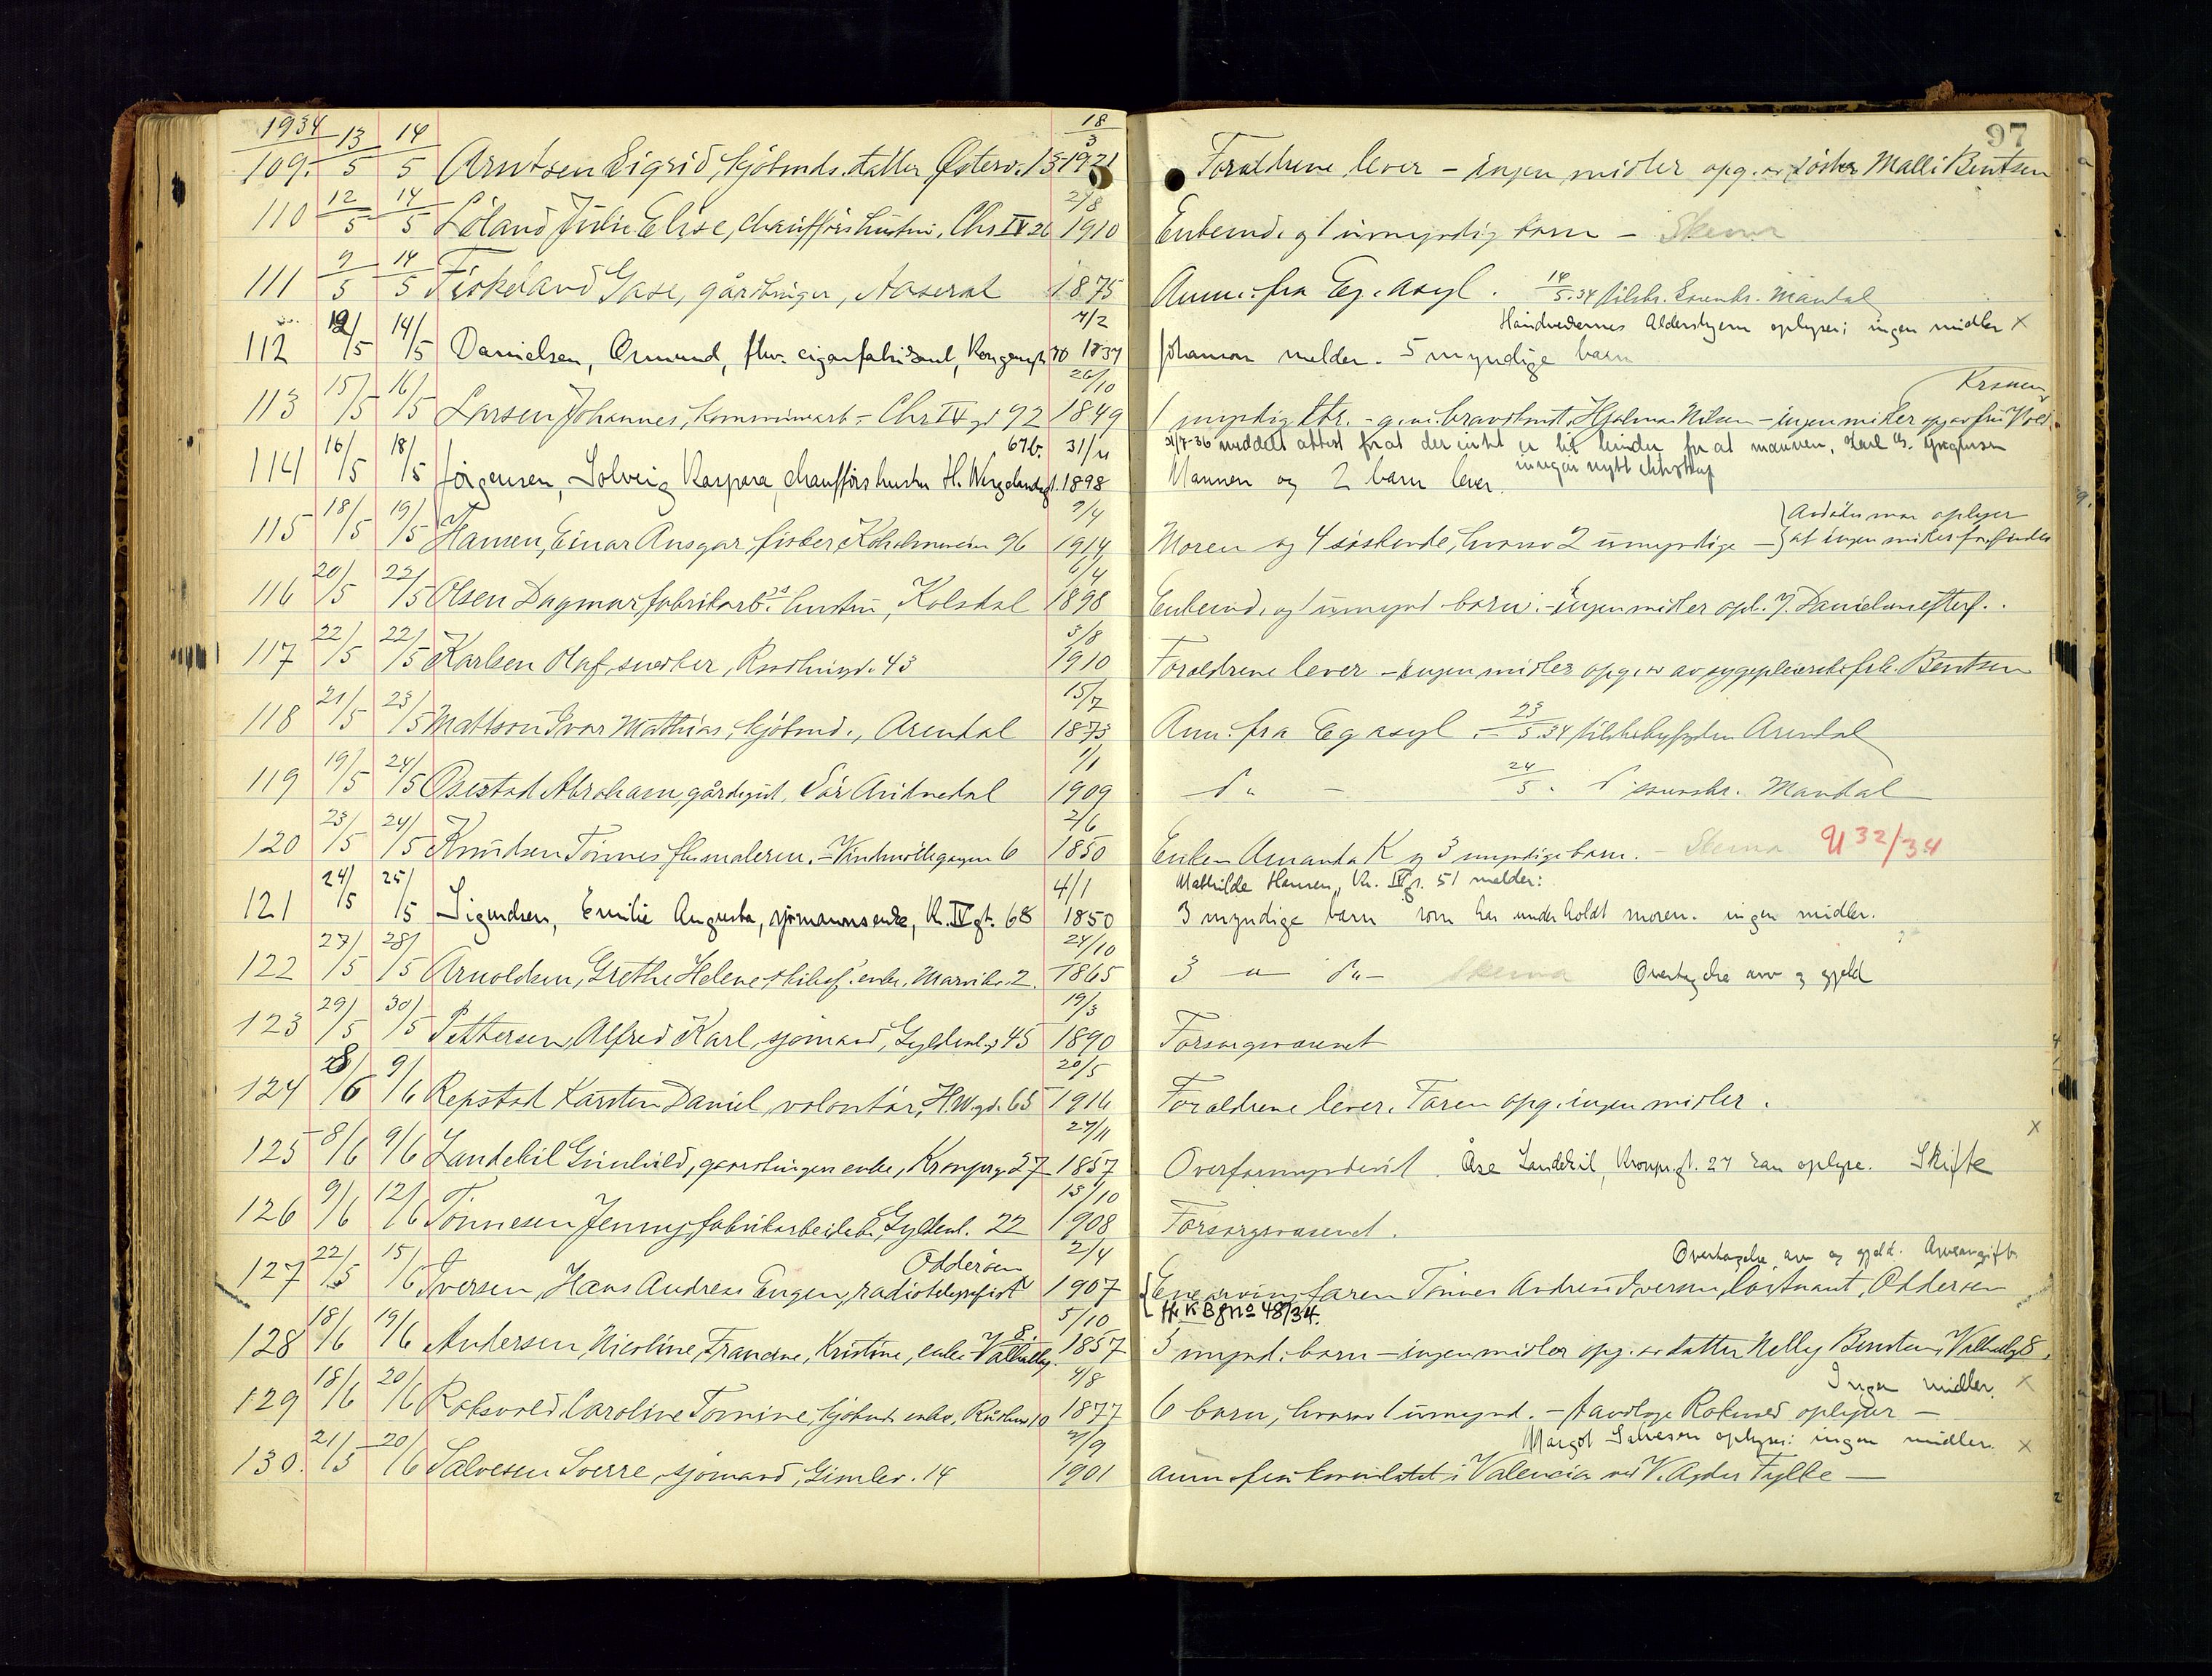 1934
97
109. 13/5 14/5 Arntsen Sigrid, kjöbmds. datter Österv. 13 18/3 1921 Foraldrene lever – ingen midler opg. av söster Malli Bentsen
110 12/5 14/5 Löland Julie Elise, chaufförs hustru, Chr IV 26 2/8 1910 Enkemd. og 1 umyndig barn – Skema
111 9/5 14/5 Fiskeland Gase, gårdbruger, Aaseral 1875 Anm. fra Eg. asyl. 14/5.34 tilskr. Sorenskr. Mandal
Håndverkernes Aldershjem oplyser: ingen midler X
112 12/5 14/5 Danielsen, Ormund, fhv. cigarfabrikant, Kongensgt 30 4/2 1837 Johanson melder. 5 myndige barn
Kranen
113 15/5 16/5 Larsen Johannes, kommunearb. – Chr IV gt 92 26/10 1849 1 myndig dtr. – g. m. Hjalmar Nilsen – ingen midler opg av fru
31/7-36 meddelt attest for at der intet er til hinder for at mannen, Karl G. Jørgensen
inngår nytt ekteskap
114 16/5 18/5 Jörgensen, Solveig Kaspara, chaufförs hustru H. Wergelandsgt. 67b. 31/11 1898 Mannen og 2 barn lever.
115 18/5 19/5 Hansen, Einar Ansgar fisker, Kolholmveien 96 9/4 1914 Moren og 4 söskende, hvorav 2 umyndige – Avdödes mor oplyser at ingen midler forefindes
116 20/5 22/5 Olsen Dagmar fabrikarb.s hustru, Kolsdal 6/4 1898 Enkemd. og 1 umynd. barn. – ingen midler opl. J. Danielsens efterf.
117 22/5 22/5 Karlsen Olaf, snedker, Kirkegd. 43 3/8 1910 Foraldrene lever – ingen midler opg. av sygepleierske frk. Bentsen
118 21/5 23/5 Mattson Ivar Mathias, kjöbmd., Arendal 15/7 1873 Anm. fra Eg asyl. – 23/5.34 tilskr. byfogden Arendal
119 19/5 24/5 Osestad Abraham, gårdsgut, Sör Audnedal 1/1 1909 do – 24/5. do sorenskr. Mandal
120 23/5 24/5 Knudsen Tönnes fhv malerm. – Vindmöllegangen 6 2/6 1850 Enken Amanda K og 3 myndige barn. – Skema U 32/34
Mathilde Hansen, Kr. IV gt. 51 melder:
121 24/5 25/5 Sigurdsen, Emilie Augusta, sjømannsenke, Kr. IV gt. 68 4/1 1850 3 myndige barn som har underholdt moren. ingen midler.
122 27/5 28/5 Arnoldsen, Grethe Helene skibsf. enke, Marviksv. 2. 24/10 1865 3 – " – do – Skema Overtagelse arv og gjeld
123 29/5 30/5 Pettersen Alfred Karl, sjömand, Gyldenl.g 45 19/3 1890 Forsorgsvæsenet
124 28/6 9/6 Repstad Karsten Daniel, volontör, H.W.gd. 65 20/5 1916 Foraldrene lever. Faren opg. ingen midler.
125 8/6 9/6 Landekil Gunhild, gaardbrugerenke, Kronprg. 27 27/11 1857 Overformynderiet. Åse Landekil, Kronpr.gt. 27 kan oplyse. Skifte X
126 9/6 12/6 Tönnesen Jenny, fabrikarbeiderske, Gyldenl. 22 13/10 1908 Forsorgsvæsenet.
Overtagelse arv og gjeld. Arveavgift
127 22/5 15/6 Iversen, Hans Andreas Eugen, radiotelegrafist Odderöen 2/4 1907 Enearving faren Tönnes Andreas Iversen, löitnant, Odderöen
Hr KBg No 48/34.
128 18/6 19/6 Andersen, Nicoline Francine, Kristine, enke Valhallg. 8. 5/10 1857 3 mynd. barn – ingen midler opg. av datter Nelly Bentsen, Valhallg 8.
Ingen midler. X
129 18/6 20/6 Roksvold Caroline Tomine, kjöbmds enke, Rådhusg 10 4/8 1877 6 barn, hvorav 1 umynd. – Roksvold oplyser –
Margot Salvesen oplyser: ingen midler. X
130. 21/5 20/6 Salvesen Sverre, sjömand, Gimlev. 14 2/9 1901 anm. fra konsulatet i Valencia ved V. Agder Fylke –